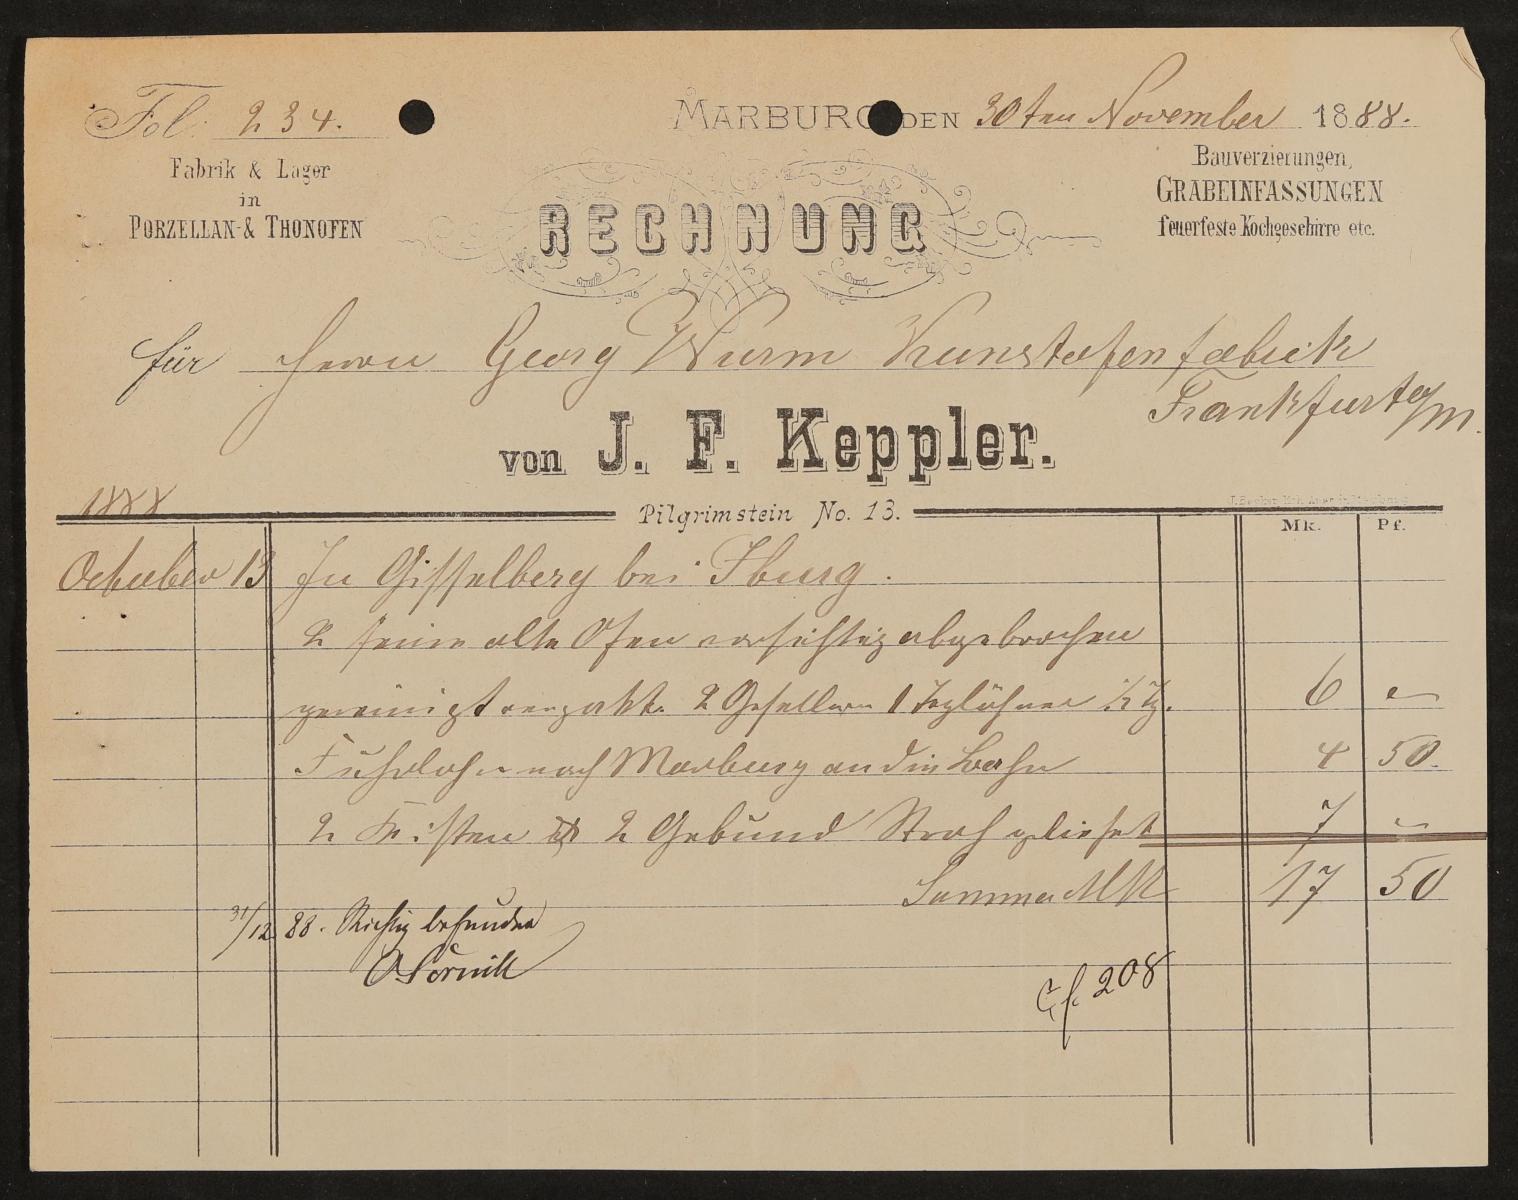 Fol. 234.
MARBURG DEN 30ten November 1888.
Fabrik & Lager
in
PORZELLAN- & THONOFEN
Bauverzierungen,
GRABEINFASSUNGEN
feuerfeste Kochgeschirre etc.
RECHNUNG
für Herrn Georg Wurm Kunstofenfabrik
Frankfurt a/M.
von J. F. Keppler.
Pilgrimstein No. 13.
1888
Mk. Pf.
October 13 In Gisselberg bei
2 alte Ofen vorsichtig abgebrochen
gereinigt verpakt. 2 Gesellen 1 Taglöhner ½ Tg. 6 –
Fuhrlohn nach Marburg an die Bahn 4 50
2 Kisten 2 Gebund Stroh geliefert 7 –
Summa Mk 17 50
31/12 88. Richtig befunden
Cf. 208